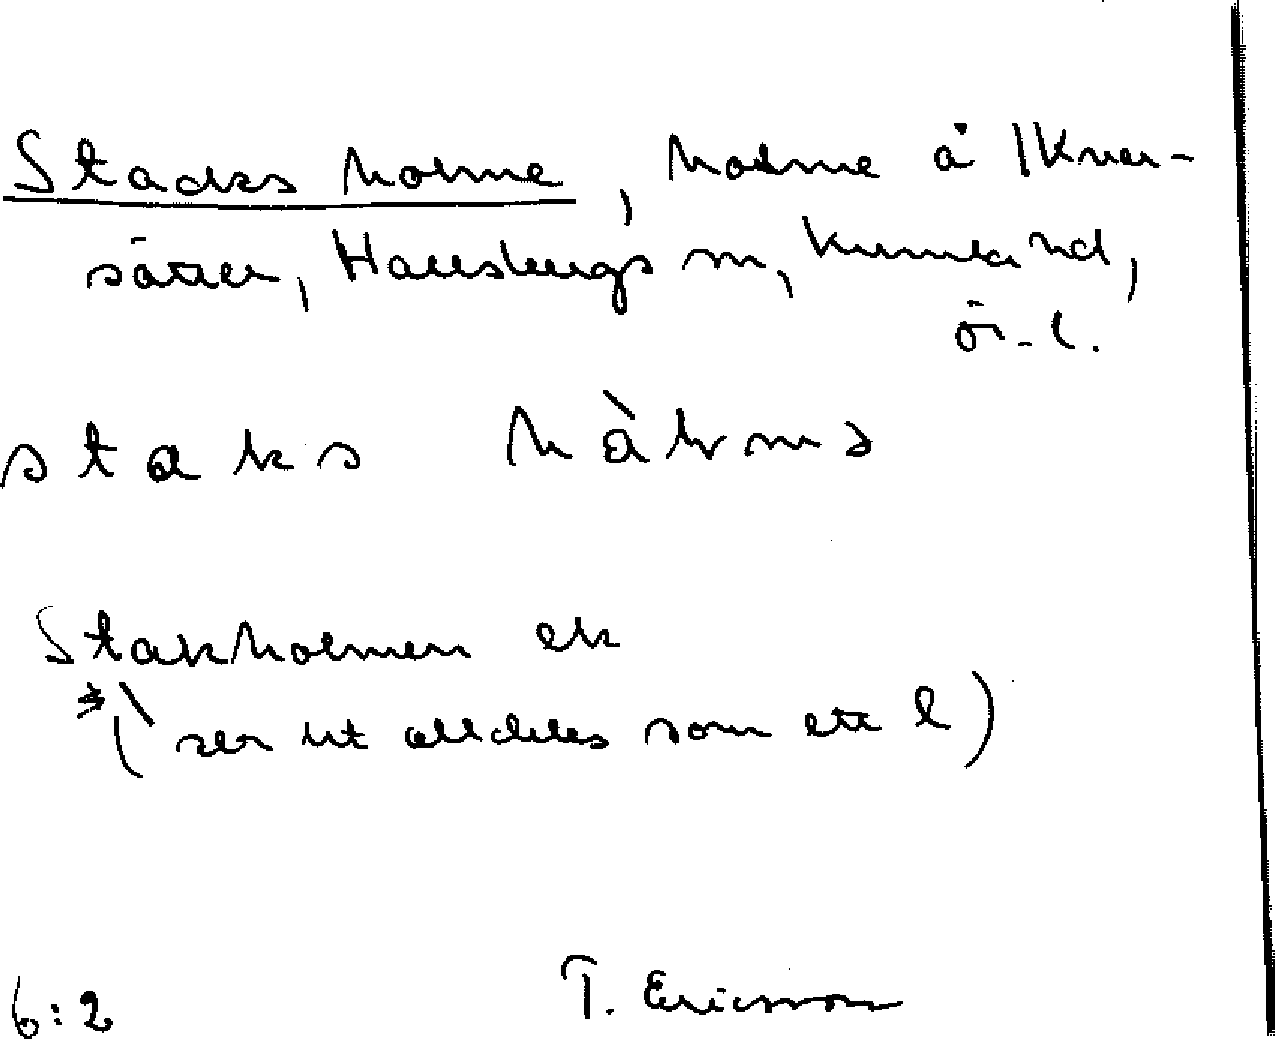 Stacks holme, holme å 1 Knar-
sätter, Hallsbergs sn, Kumla hd,
Ör. l.
staks hòlmə
Stakholmen ek
(ser ut alldeles som ett l)
6:2 T. Ericsson